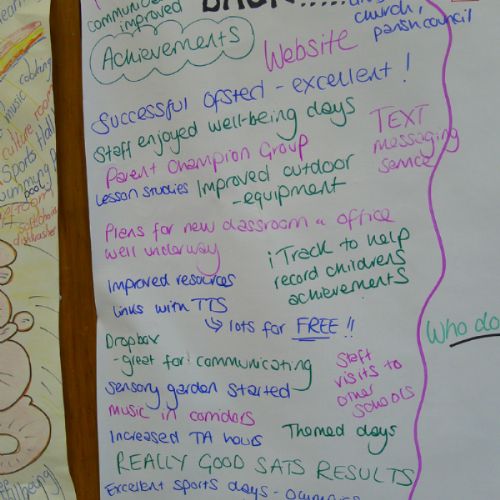 improved
BACK.....
church,
parish council
Achievements
Website
Successful Ofsted - excellent!
Staff enjoyed well-being days
TEXT
messaging
service
Parent Champion Group
Lesson studies
Improved outdoor
- equipment
Plans for new classroom & office
well underway
iTrack to help
record childrens
achievements
Improved resources
links with TTS
↳ lots for FREE !!
Dropbox
- great for communicating
Staff
visits to
other
schools
Sensory garden started
music in corridors
Increased TA hours
Themed days
REALLY GOOD SATS RESULTS
Excellent sports days -
Who do
cooking
music
culture room
Sports Hall
pool